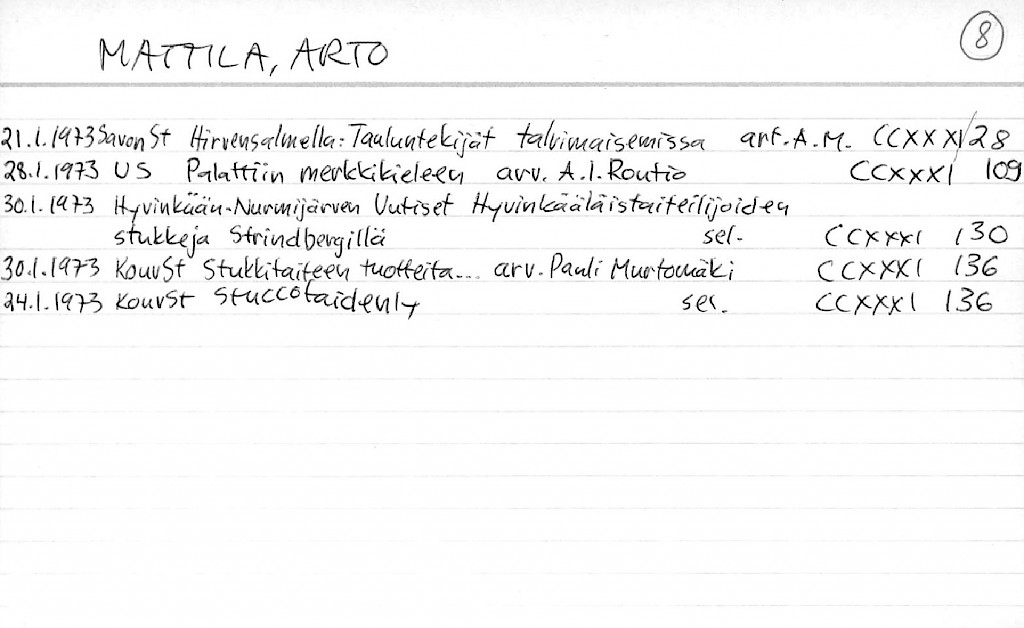 8
MATTILA, ARTO
21.1.1973 SavonSt Hirvensalmella: Tauluntekijät talvimaisemissa art. A.M. CCXXXI/28
28.1.1973 US Palattiin merkkikieleen arv. A.I. Routio CCXXXI 109
30.1.1973 Hyvinkään-Nurmijärven Uutiset Hyvinkääläistaiteilijoiden
stukkeja Strindbergillä sel. CCXXXI 130
30.1.1973 KouvSt Stukkitaiteen tuotteita... arv. Pauli Murtomäki CCXXXI 136
24.1.1973 KouvSt Stuccotaiden sel. CCXXXI 136